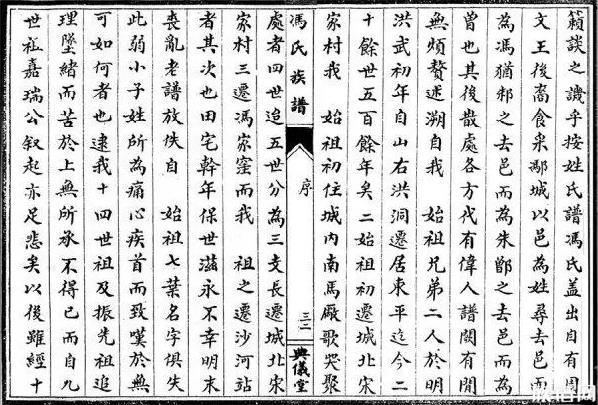 籍談之譏乎按姓氏譜馮氏蓋出自有周
文王後裔食采城以邑為姓尋去邑而
為馮猶邾之去邑而為朱鄫之去邑而為
曾也其後散處各方代有偉人譜闕有間
無煩贅述溯自我 始祖兄弟二人於明
洪武初年自山右洪洞遷居東平迄今二
十餘世五百餘年矣二始祖初遷城北宋
家村我 始祖初住城內南馬廠歌哭聚
馮氏族譜 序 三二 典儀堂
處者四世迨五世分為三支長遷城北宋
家村三遷馮家窪而我 祖之遷沙河站
者其次也田宅幹年保世滋永不幸明末
喪亂老譜放佚自 始祖七葉名字俱失
此弱小子姓所為痛心疾首而致嘆於無
可如何者也逮我十四世祖及振先祖追
理墜緒而苦於上無所承不得已而自九
世祖嘉瑞公叙起亦足悲矣以後雖經十